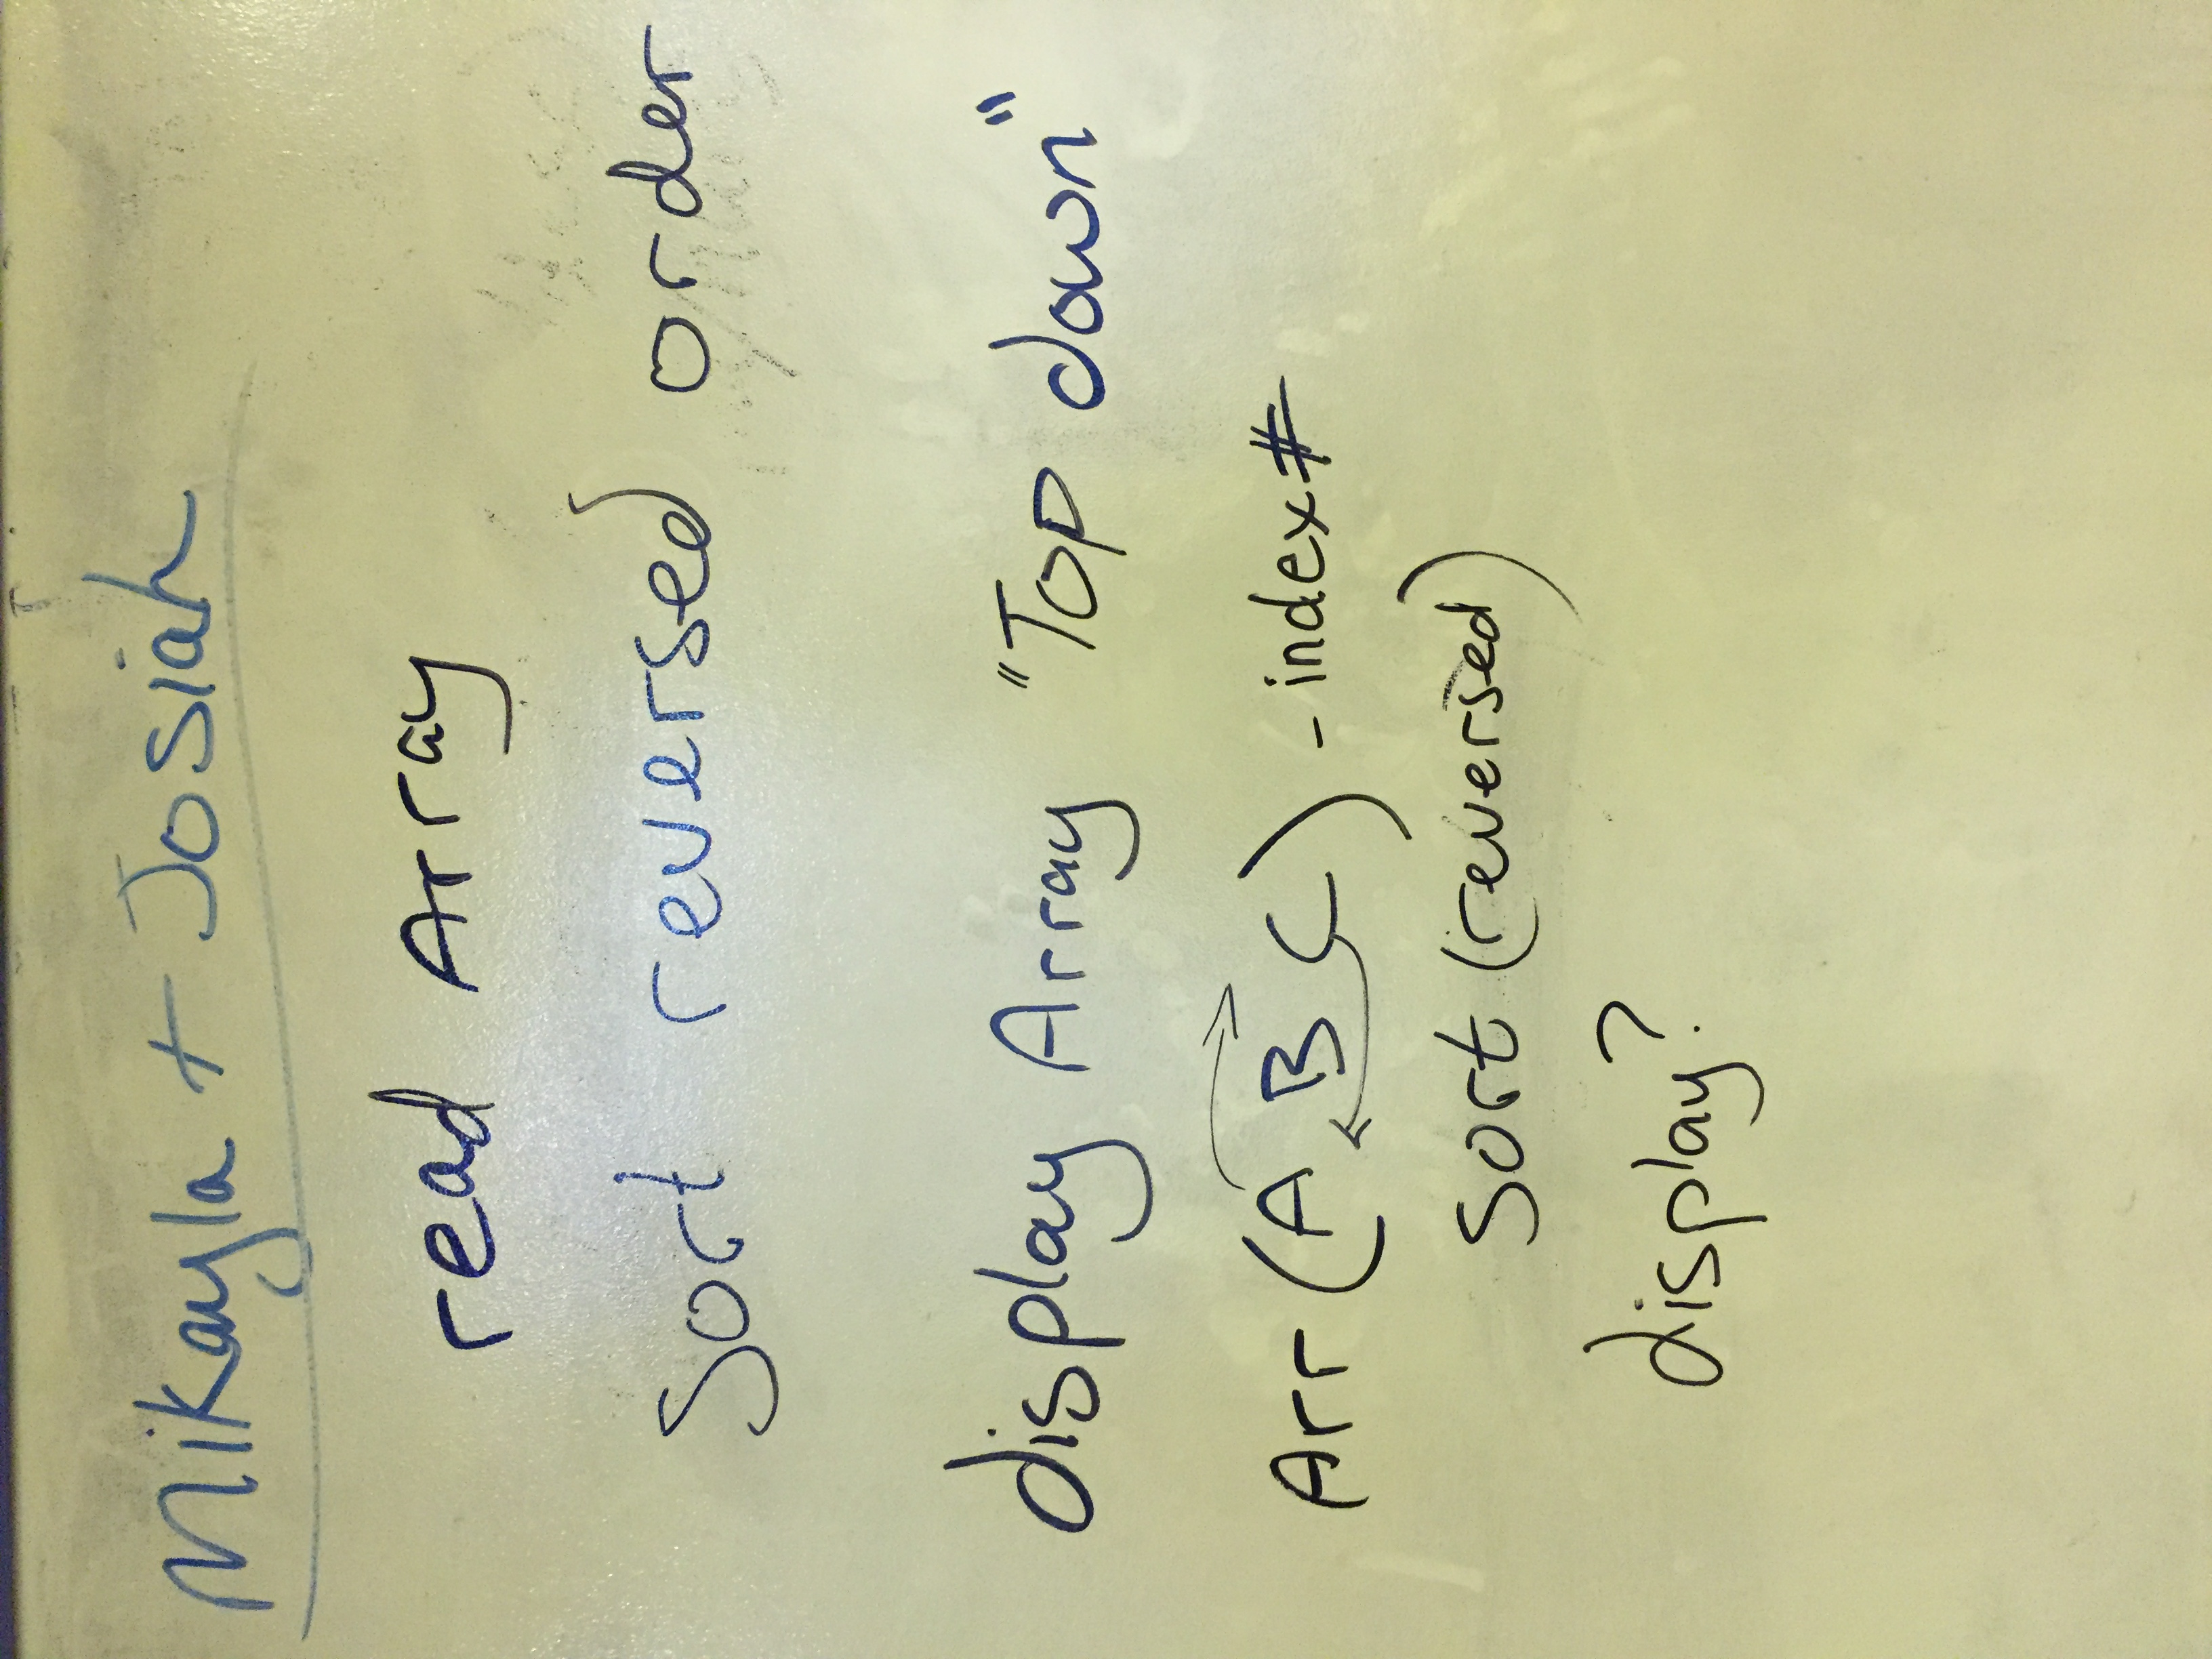 Mikayla + Josiah
read Array
sort reversed order
display Array "Top down"
Arr (A B C) - index#
sort (reversed)
display?